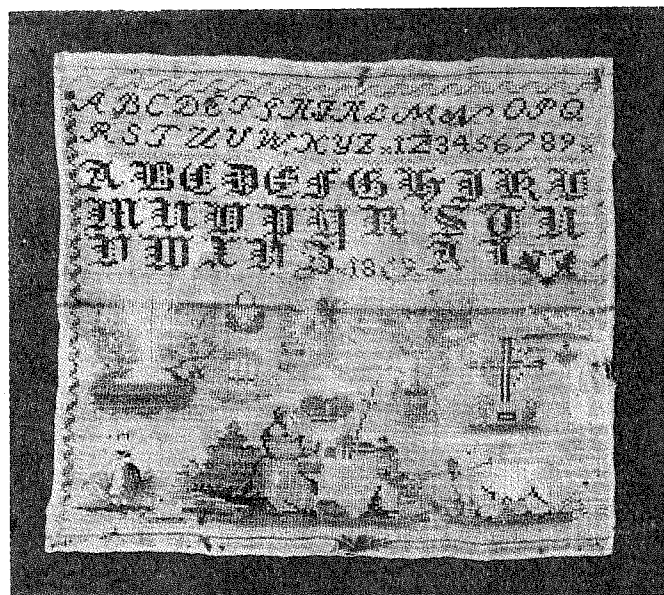 A B C D E F G H I K L M N O P Q
R S T U V W X Y Z × 1 2 3 4 5 6 7 8 9 ×
A B C D E F G H J K L
M N O P Q R S T U
V W X Y Z
A L